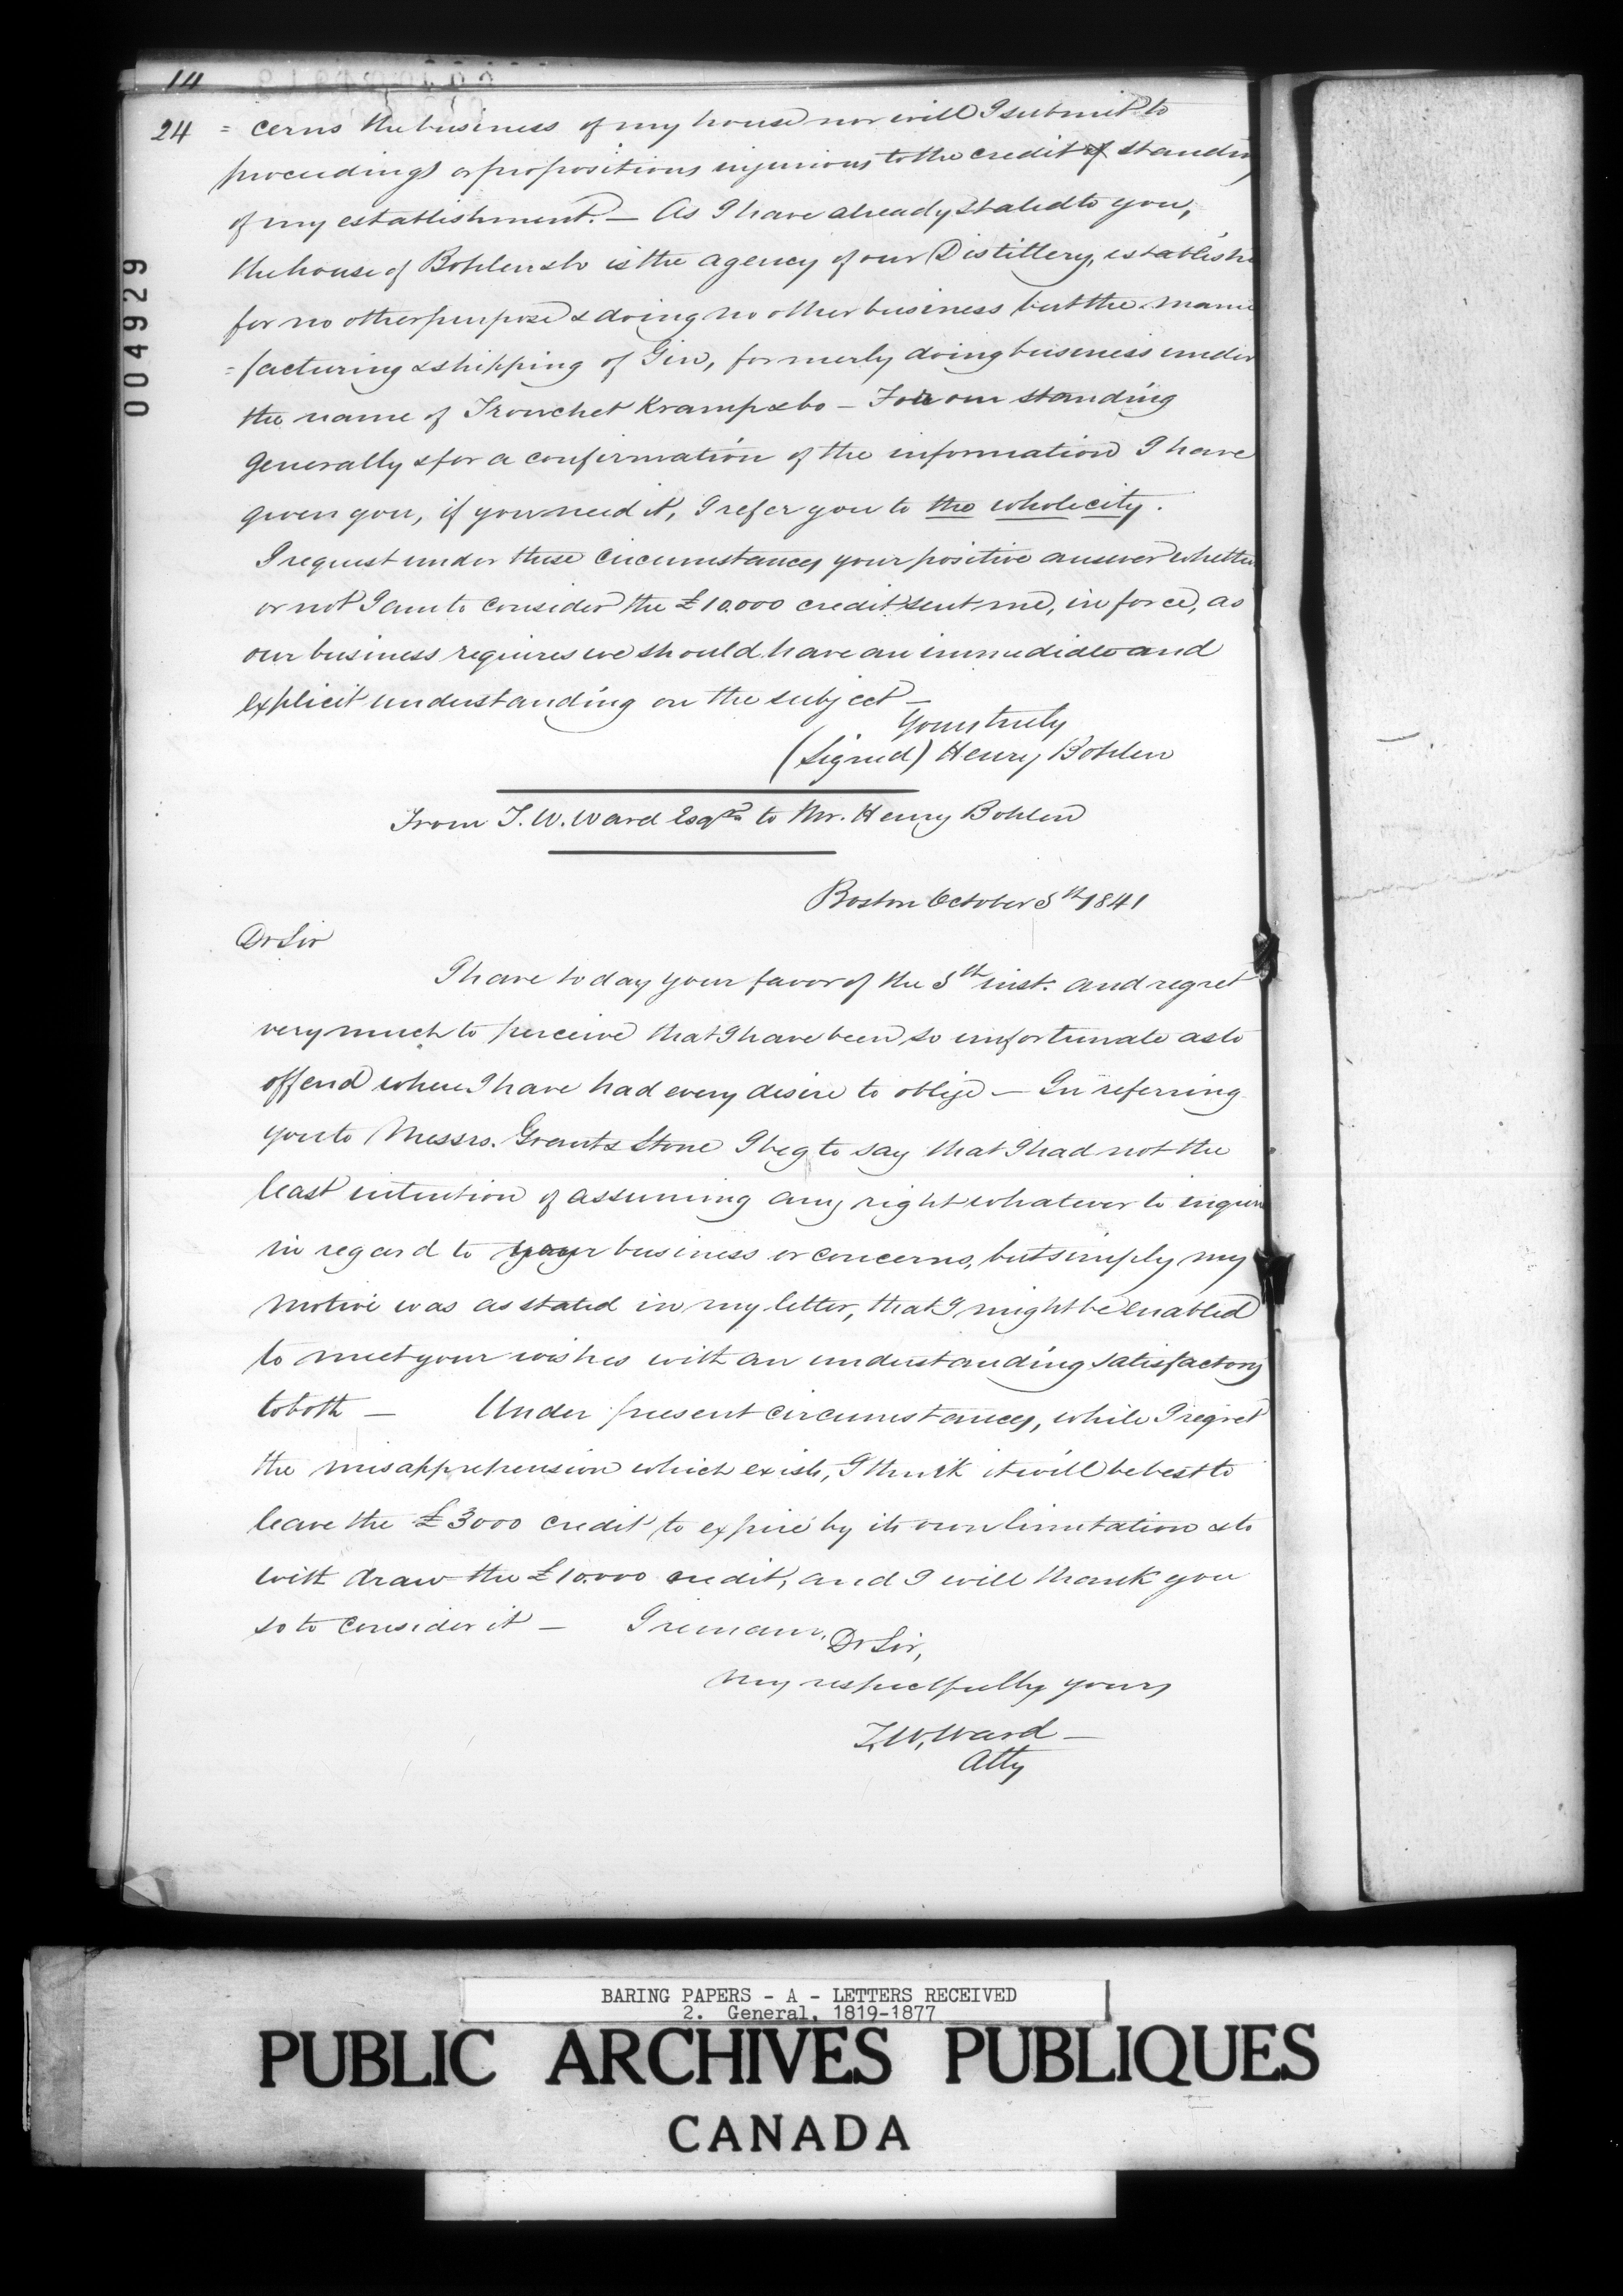 14
24 = cerns the business of my house nor will I submit to
proceedings or propositions injurious to the credit & standing
of my establishment. — As I have already stated to you,
the house of Bohlen & Co is the agency of our Distillery, establishe
for no other purpose & doing no other business but the manu
= facturing & shipping of Gin, formerly doing business under
the name of Tronchet Kramp & Co — For our standing
generally & for a confirmation of the information I have
given you, if you need it, I refer you to the whole city.
I request under these circumstances your positive answer whether
or not I am to consider the £10.000 credit sent me, in force, as
our business requires we should have an immediate and
explicit understanding on the subject —
Yours truly
(Signed) Henry Bohlen
From T. W. Ward Esqre to Mr. Henry Bohlen
Boston October 5th 1841
Dr Sir
I have to day your favor of the 5th inst. and regret
very much to perceive that I have been so unfortunate as to
offend where I have had every desire to oblige — In referring
you to Messrs. Grant & Stone I beg to say that I had not the
least intention of assuming any right whatever to inquire
in regard to your business or concerns, but simply my
motive was as stated in my letter, that I might be enabled
to meet your wishes with an understanding satisfactory
to both — Under present circumstances, while I regret
the misapprehension which exists, I think it will be best to
leave the £3000 credit to expire by its own limitation & to
with draw the £10.000 credit, and I will thank you
so to consider it — I remain, Dr Sir,
very respectfully yours
T. W. Ward —
Atty
004929
BARING PAPERS - A - LETTERS RECEIVED
2. General, 1819-1877
PUBLIC ARCHIVES PUBLIQUES
CANADA